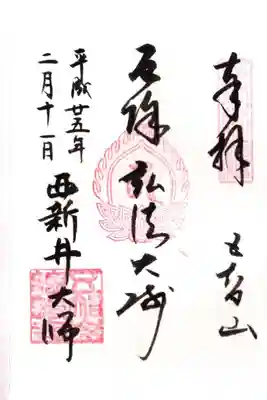 奉拝 五智山
厄除 弘法大師
平成廿五年
二月十一日
西新井大師